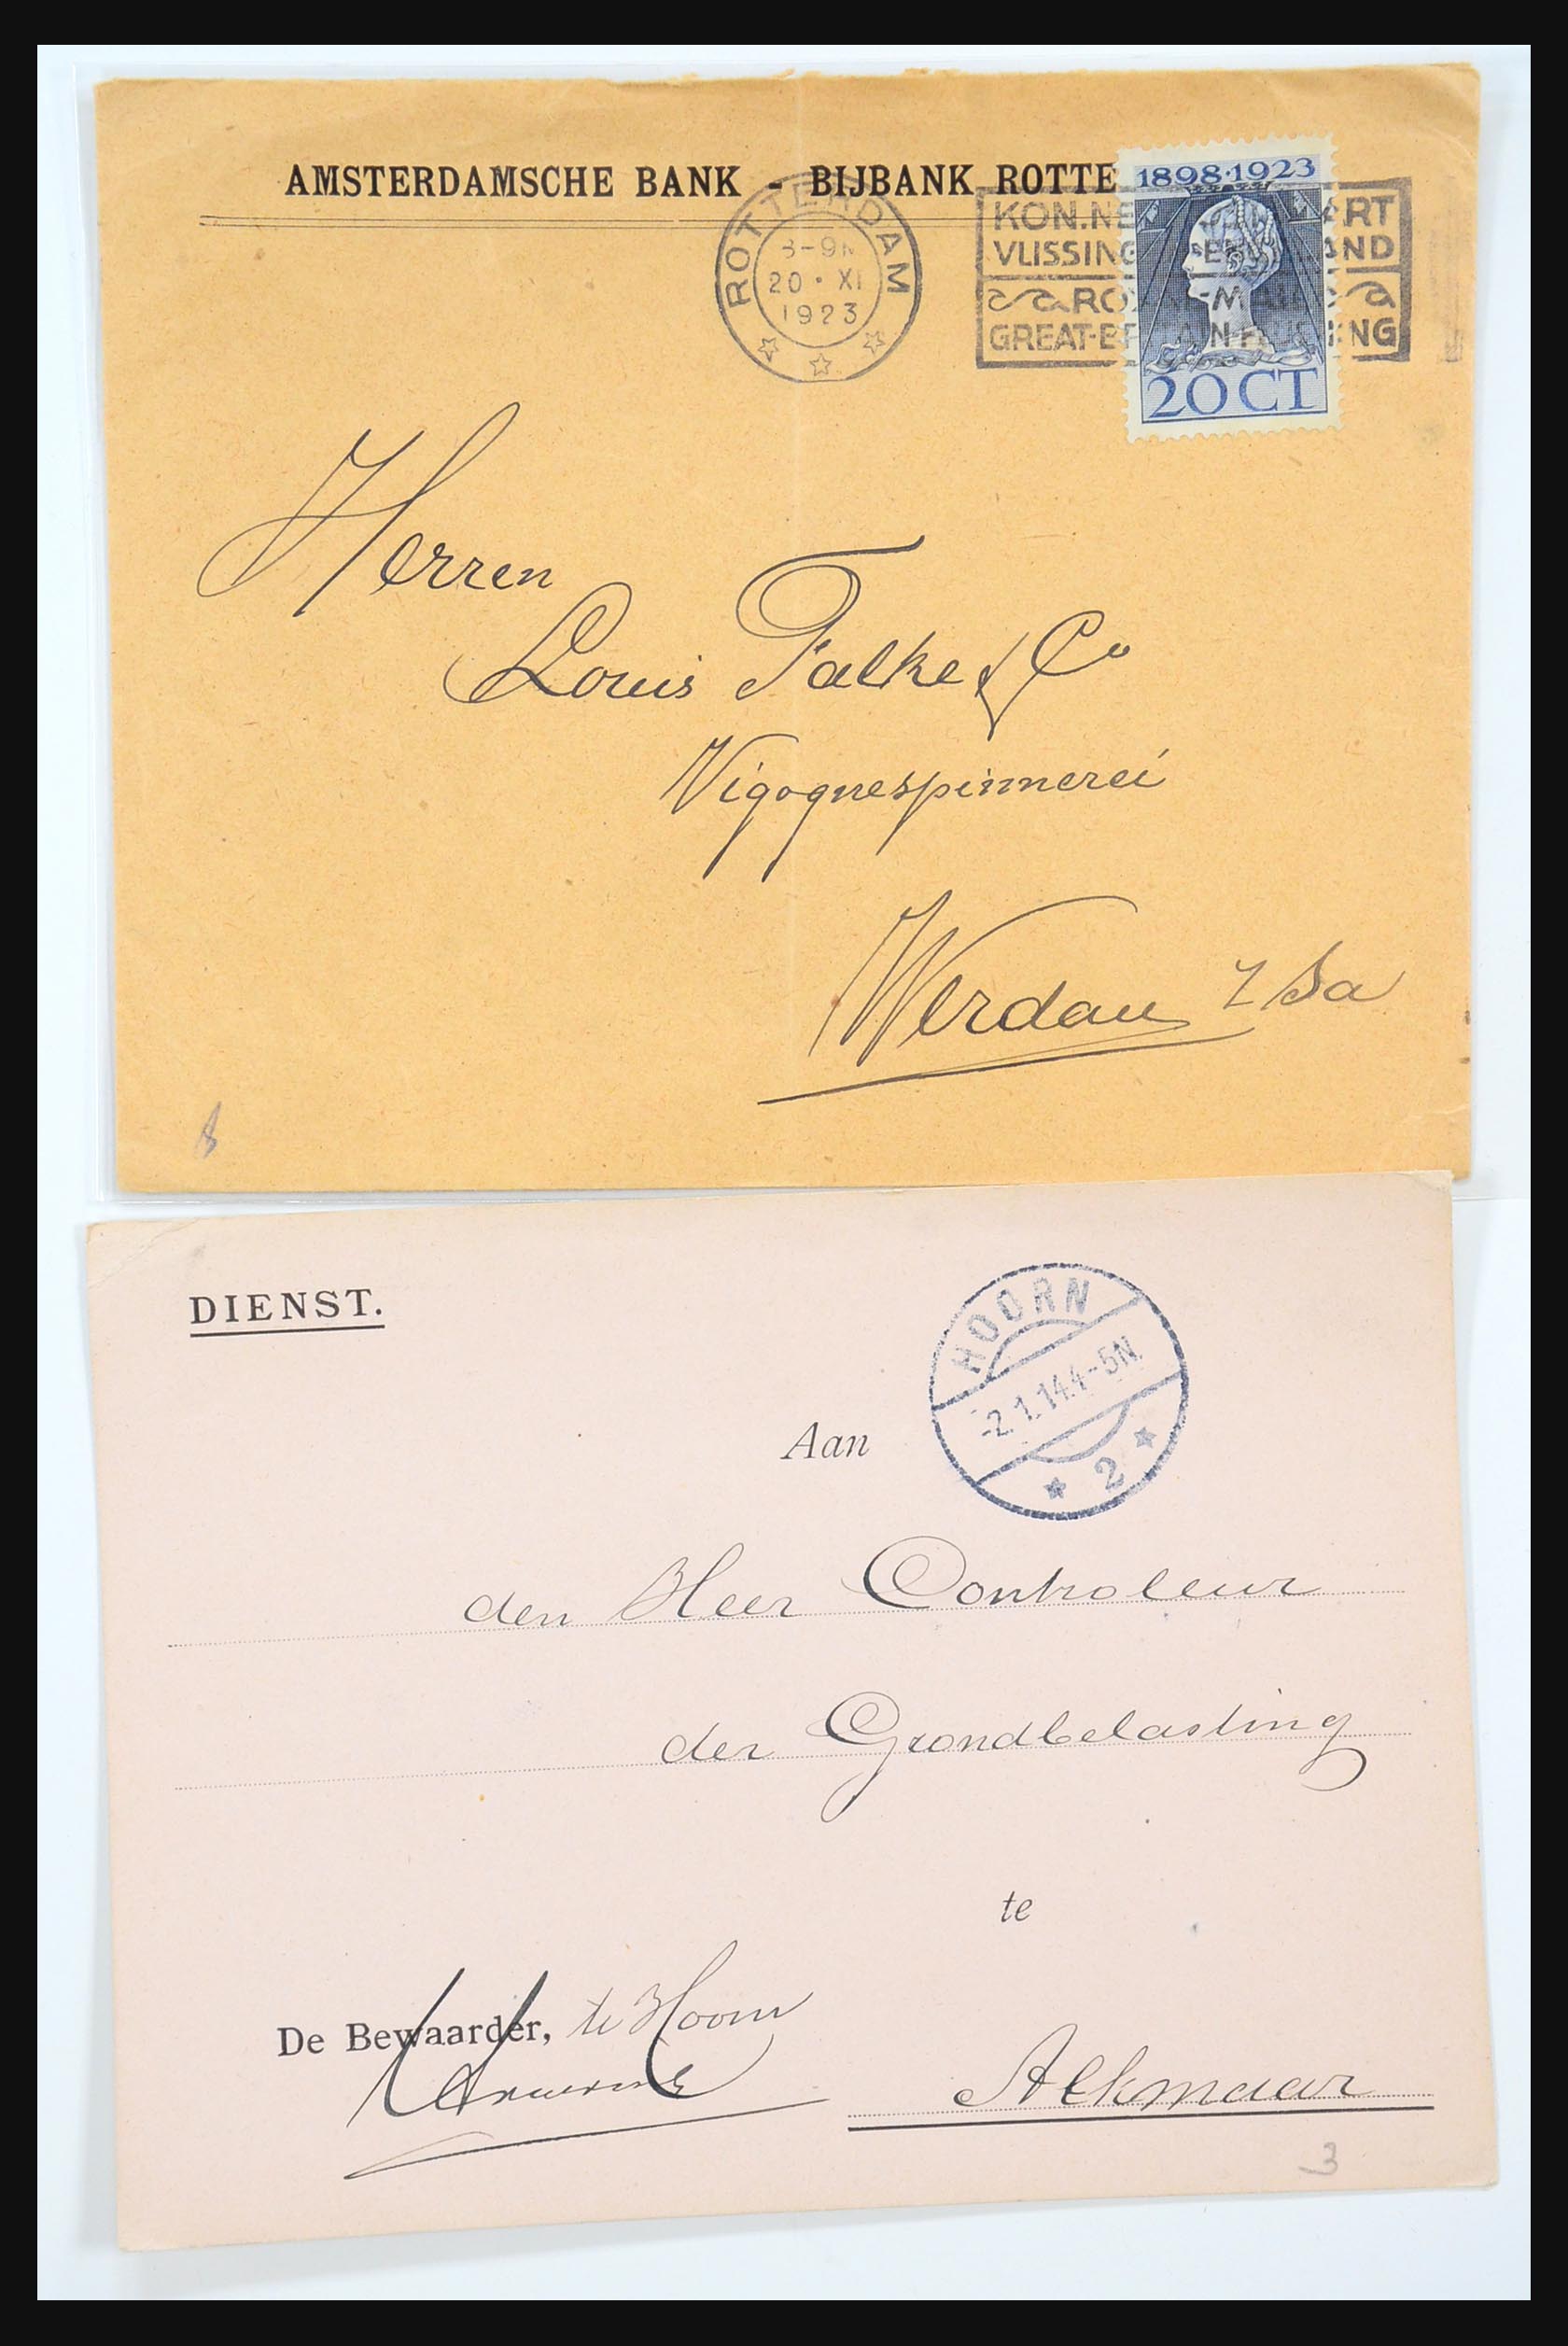 AMSTERDAMSCHE BANK - BIJBANK ROTTE
1898·1923
20 CT
ROTTERDAM
20·XI
1923
KON.NE ART
VLISSING AND
GREAT-B NG
Herren
Louis Falke & Co
Vigognespinnerei
Werdau i/Sa
DIENST.
HOORN
-2.1.14.4-5N.
2
Aan
den Heer Controleur
der Grondbelasting
te
De Bewaarder, te Hoorn
Alkmaar
3